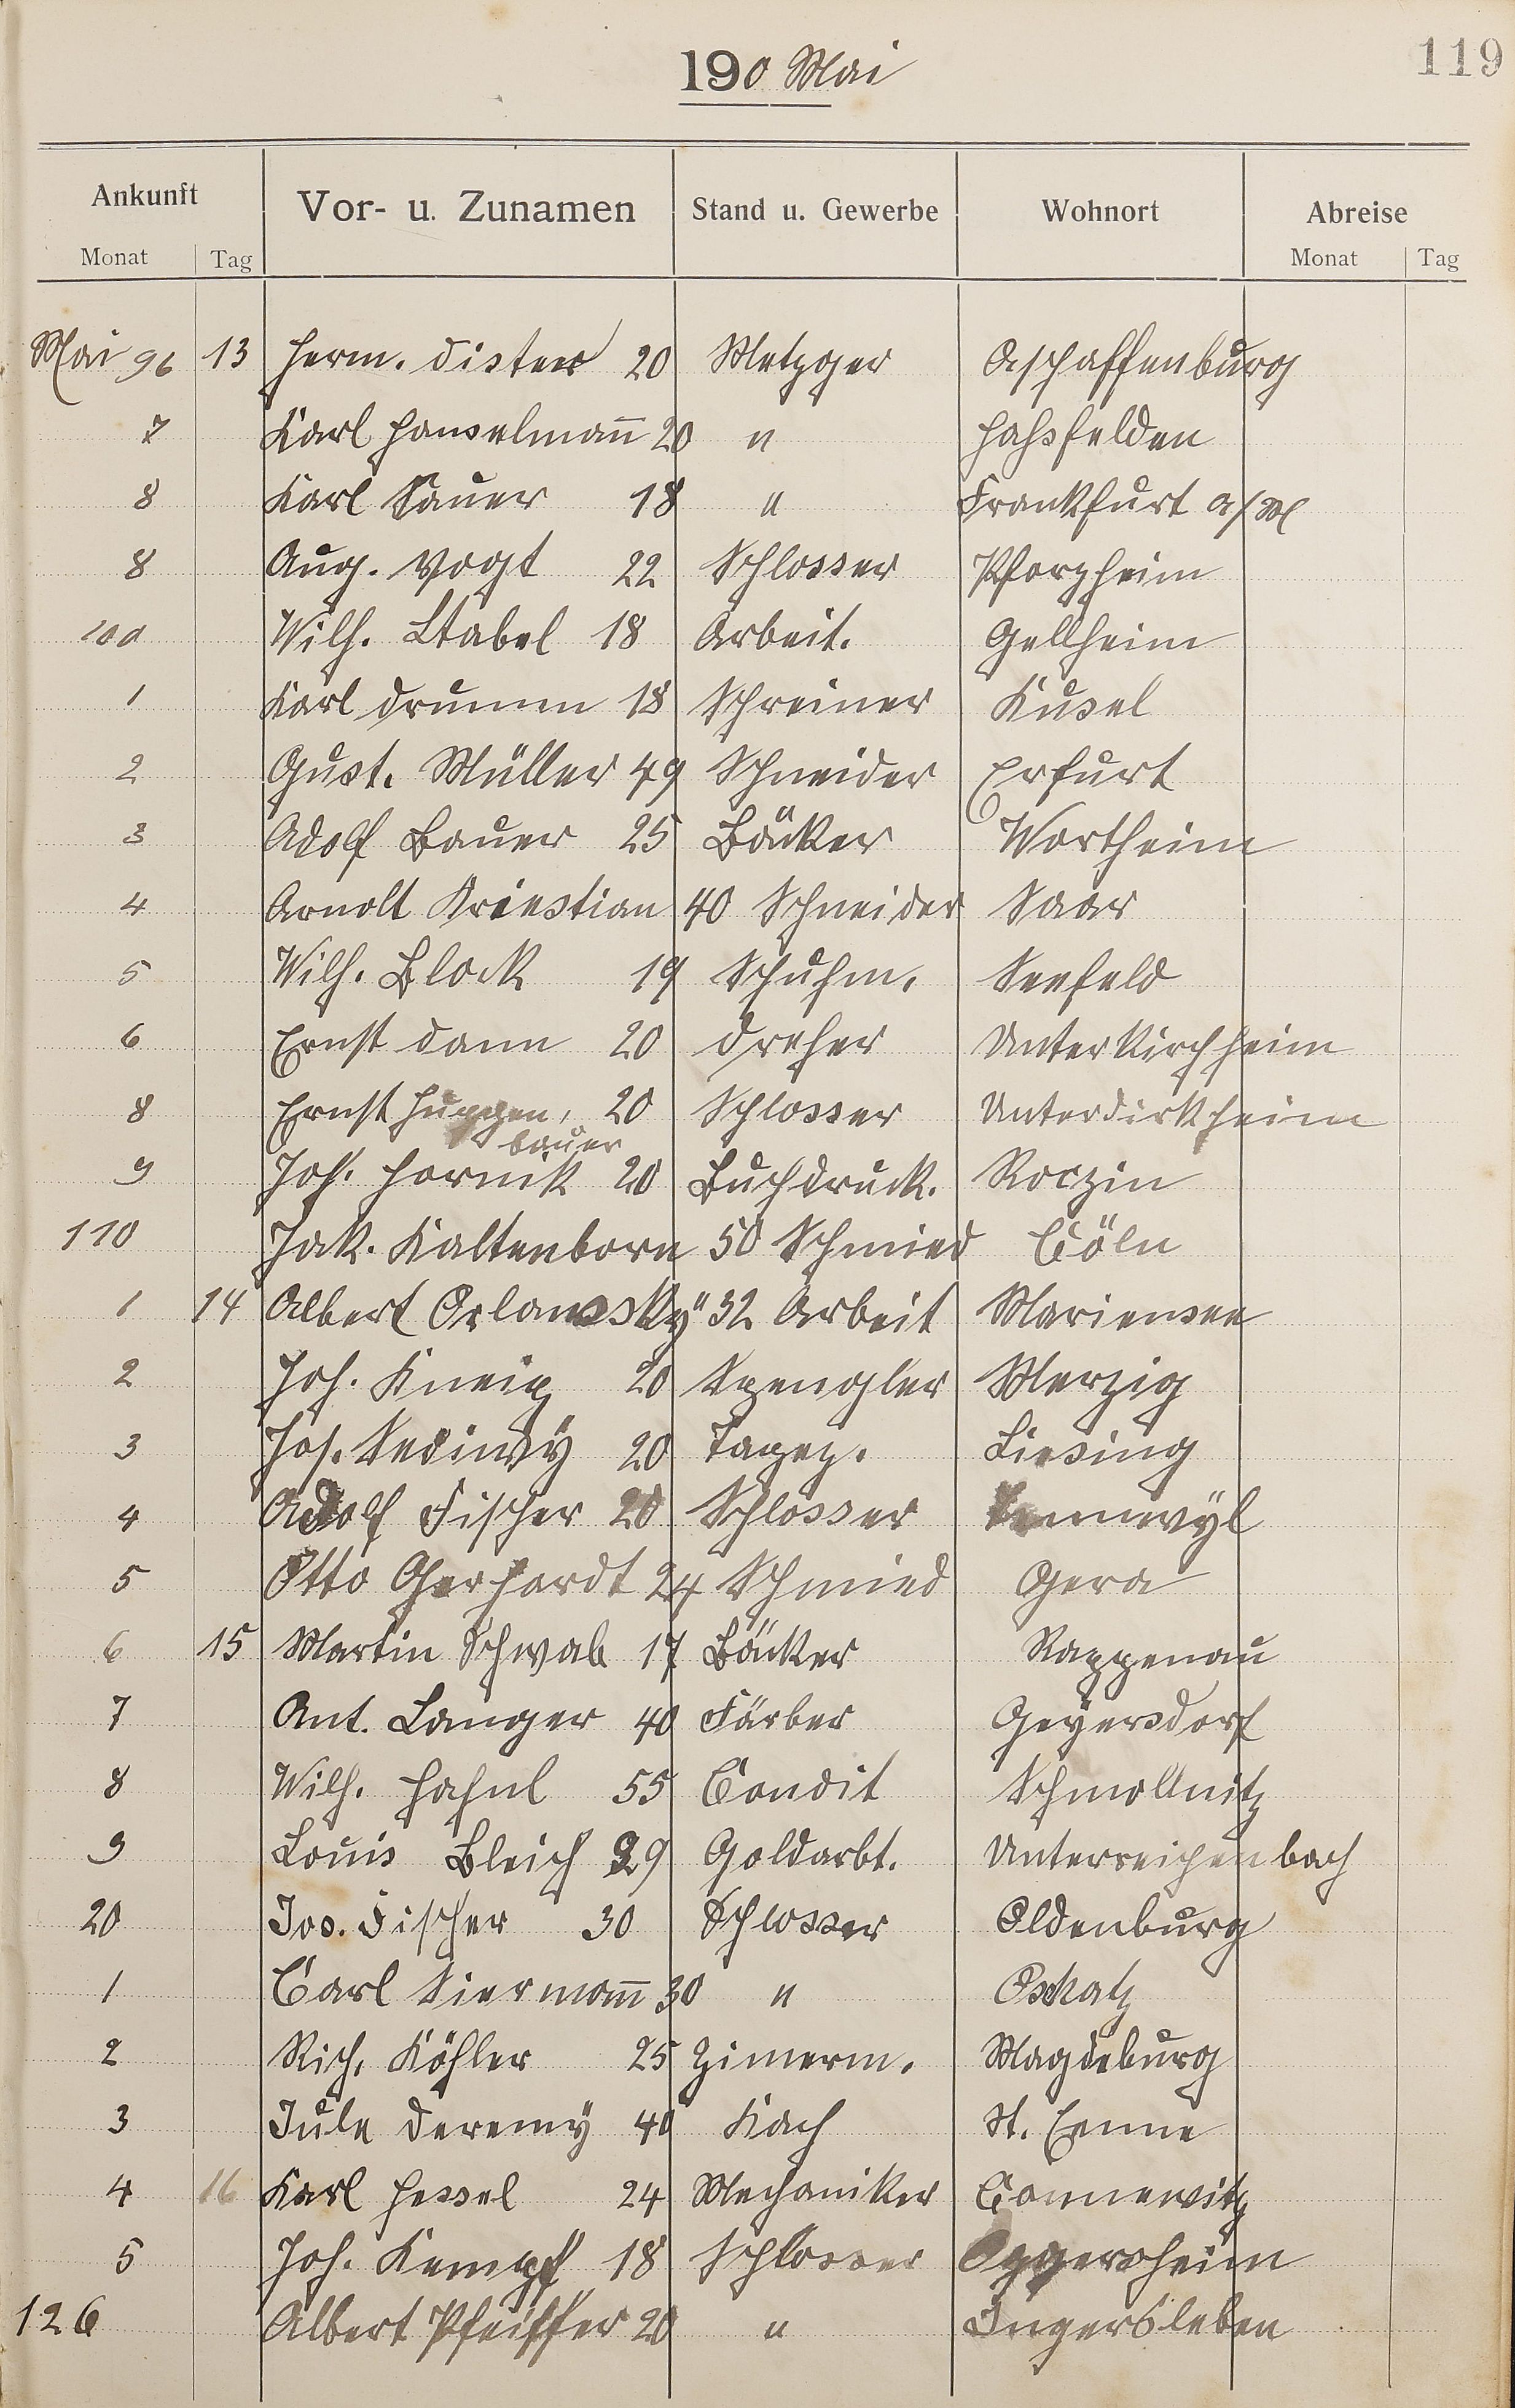 119
190 Mai
Ankunft Vor- u. Zunamen Stand u. Gewerbe Wohnort Abreise
Monat Tag Monat Tag
Mai 96 13 Herm. Dister 20 Metzger Aschaffenburg
7 Karl Hanselmañ 20 " Hahsfelden
8 Karl Sauer 18 " Frankfurt a/M
8 Aug. Vogt 22 Schlosser Pforzheim
100 Wilh. Stabel 18 Arbeit. Gellheim
1 Karl Drumm 18 Schreiner Kusel
2 Gust. Müller 49 Schneider Erfurt
3 Adolf Bauer 25 Bäcker Wertheim
4 Arnolt Kriestian 40 Schneider Saar
5 Wilh. Block 19 Schuhm. Seefeld
6 Ernst Dann 20 Dreher Unterkirchheim
8 Ernst Huppen, 20 Schlosser Unterdirkheim
bauer
9 Joh. Hornik 20 Buchdruck. Roczin
110 Jak. Kaltenborn 50 Schmied Cöln
1 14 Albert Orlowsky 32 Arbeit Mariensee
2 Joh. Kneip 20 Spengler Merzig
3 Jos. Sediwÿ 20 Tapez. Liesing
4 Adolf Fischer 20 Schlosser
5 Otto Gerhardt 24 Schmied Gera
6 15 Martin Schwab 17 Bäcker Rappenau
7 Ant. Langer 40 Färber Geyersdorf
8 Wilh. Hahnl 55 Condit Schmollnitz
9 Louis Bleich 29 Goldarbt. Unterreichenbach
20 Jos. Fischer 30 Schlosser Oldenburg
1 Carl Siermañ 30 " Oskatz
2 Rich. Köhler 25 Zimerm. Magdeburg
3 Jule Deremÿ 40 Koch St. Erme
4 16 Karl Hessel 24 Mechaniker Connewitz
5 Joh. Kempf 18 Schlosser Oggersheim
126 Albert Pfeiffer 20 " Ingersleben